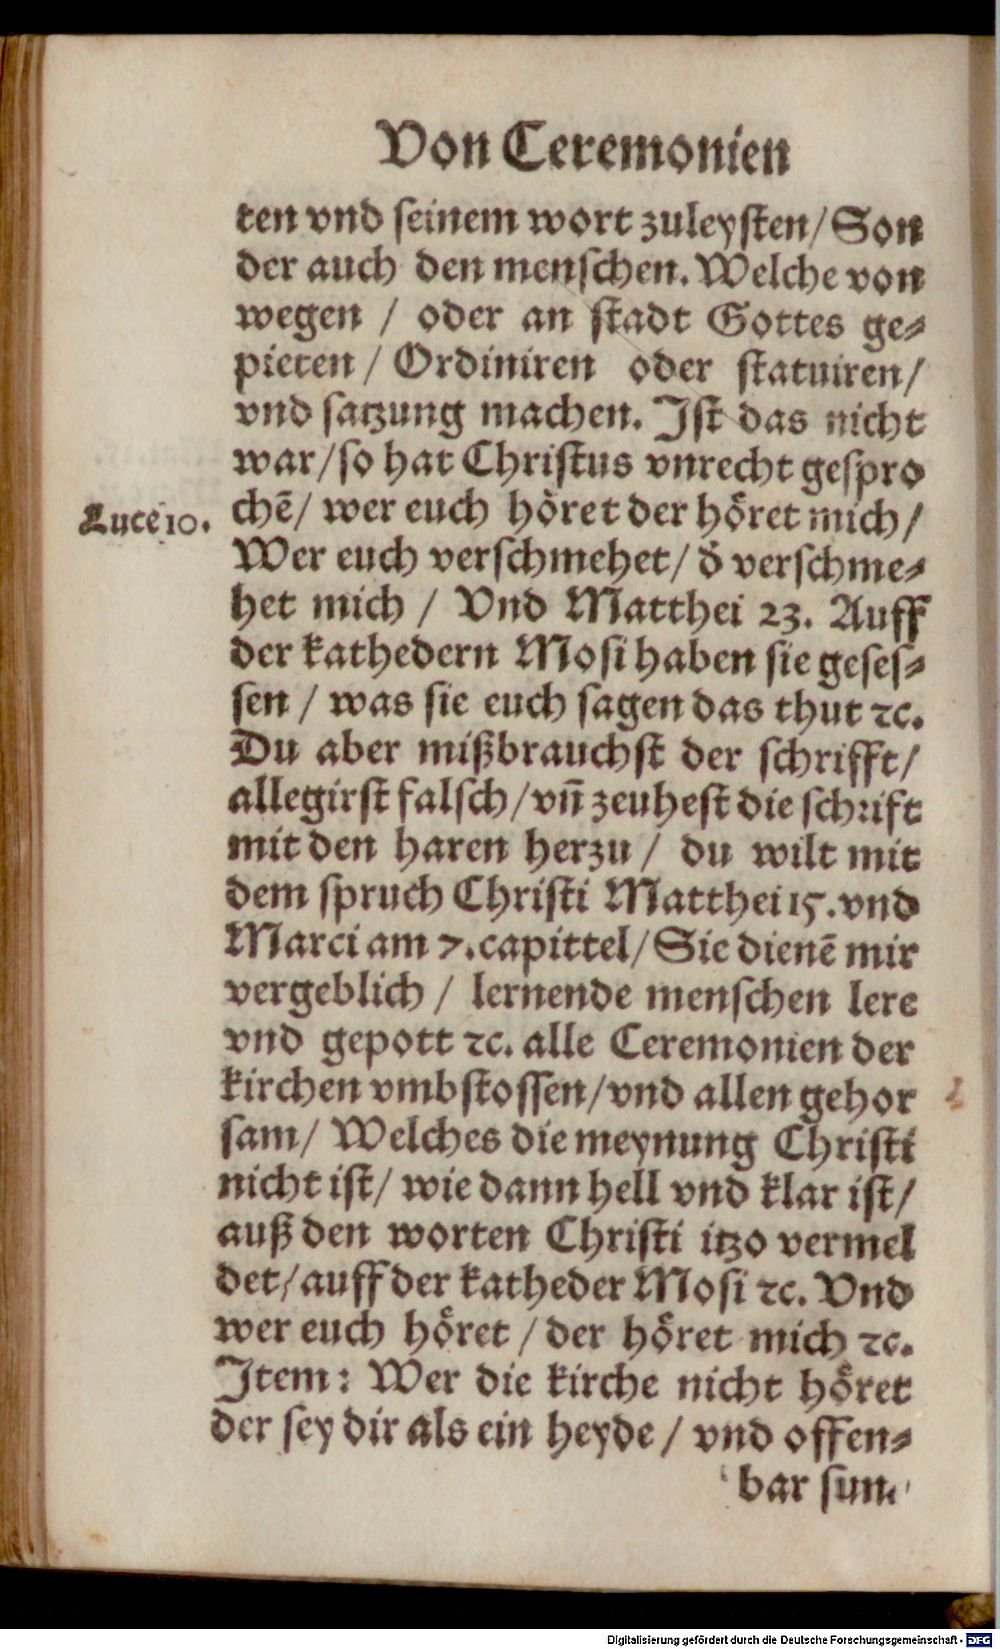 Von Ceremonien
ten vnd seinem wort zuleysten/ Son
der auch den menschen. Welche von
wegen / oder an stadt Gottes ge⸗
pieten / Ordiniren oder statuiren/
vnd satzung machen. Ist das nicht
war/ so hat Christus vnrecht gespro
Luce 10. chē/ wer euch höret der höret mich/
Wer euch verschmehet/ d̄ verschme⸗
het mich / Vnd Matthei 23. Auff
der kathedern Mosi haben sie geses⸗
sen / was sie euch sagen das thut ꝛc.
Du aber mißbrauchst der schrifft/
allegirst falsch/ vñ zeuhest die schrift
mit den haren herzu / du wilt mit
dem spruch Christi Matthei 15. vnd
Marci am 7. capittel/ Sie dienē mir
vergeblich / lernende menschen lere
vnd gepott ꝛc. alle Ceremonien der
kirchen vmbstossen/ vnd allen gehor
sam/ Welches die meynung Christi
nicht ist/ wie dann hell vnd klar ist/
auß den worten Christi itzo vermel
det/ auff der katheder Mosi ꝛc. Vnd
wer euch höret / der höret mich ꝛc.
Item: Wer die kirche nicht höret
der sey dir als ein heyde / vnd offen⸗
bar sun⸗
Digitalisierung gefördert durch die Deutsche Forschungsgemeinschaft - DFG